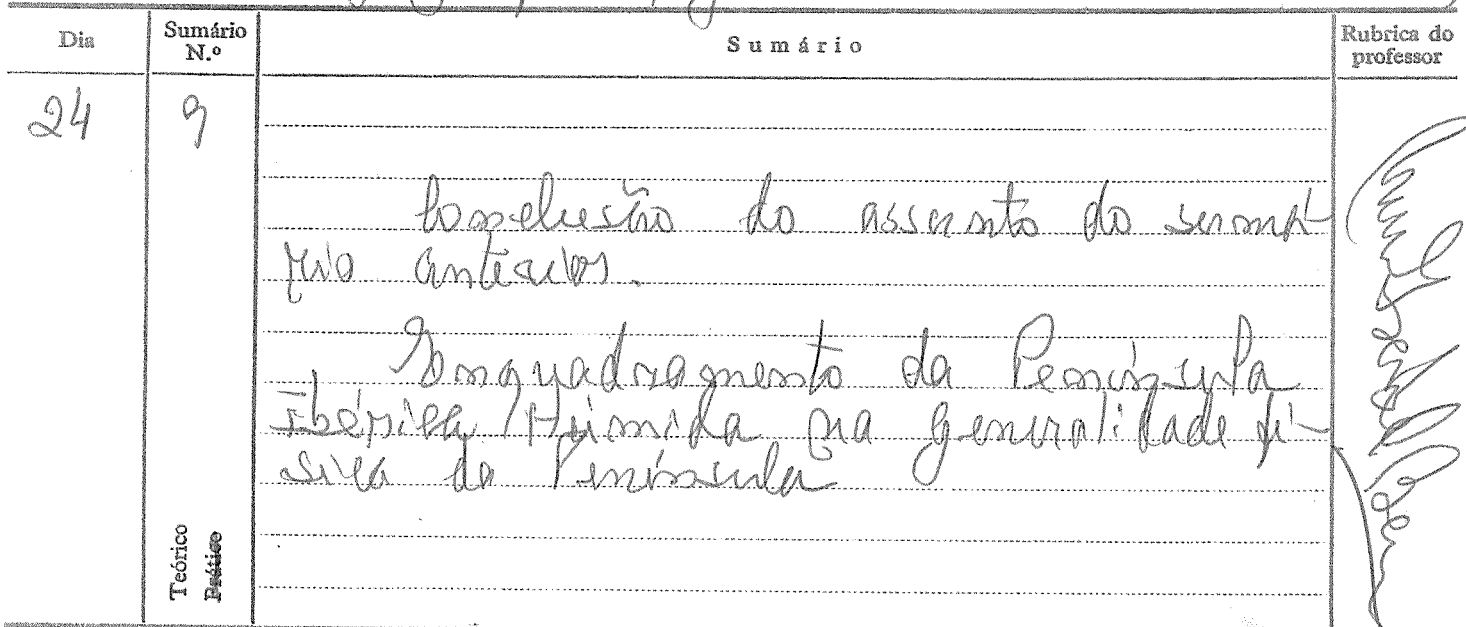 Dia Sumário N.º Sumário Rubrica do professor
24 9
Conclusão do assunto do sumá-
rio anterior.
Enquadramento da Península
Ibérica Húmida na generalidade fí-
sica da Península
Teórico
Prático